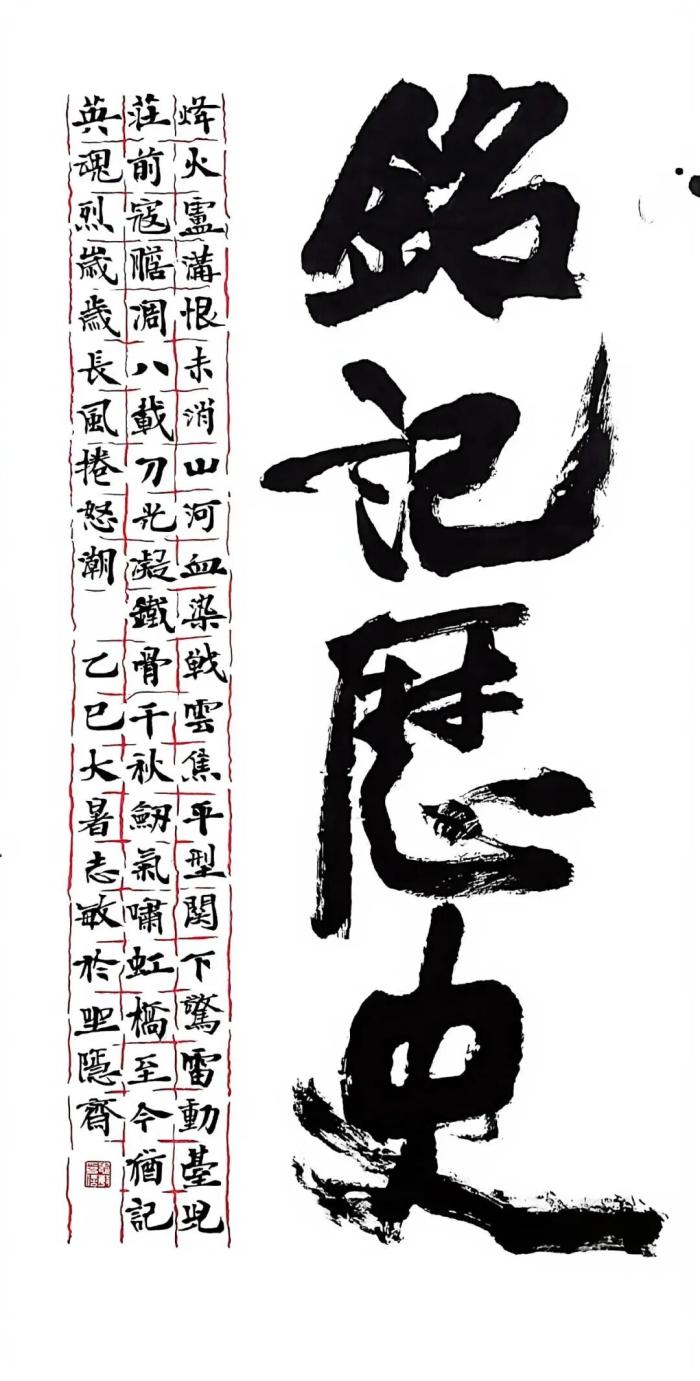 銘記歷史
烽火盧溝恨未消山河血染戦雲焦平型関下驚雷動臺児
莊前寇膽凋八載刀光凝鐵骨千秋劒氣嘯虹橋至今猶記
英魂烈歲歲長風捲怒潮 乙巳大暑志敏於隱齊